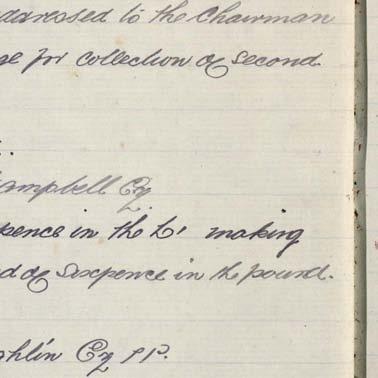 addressed to the Chairman
ge for collection of second
Campbell Esq.
pence in the £, making
d of Sixpence in the pound.
ghlin Esq J.P.